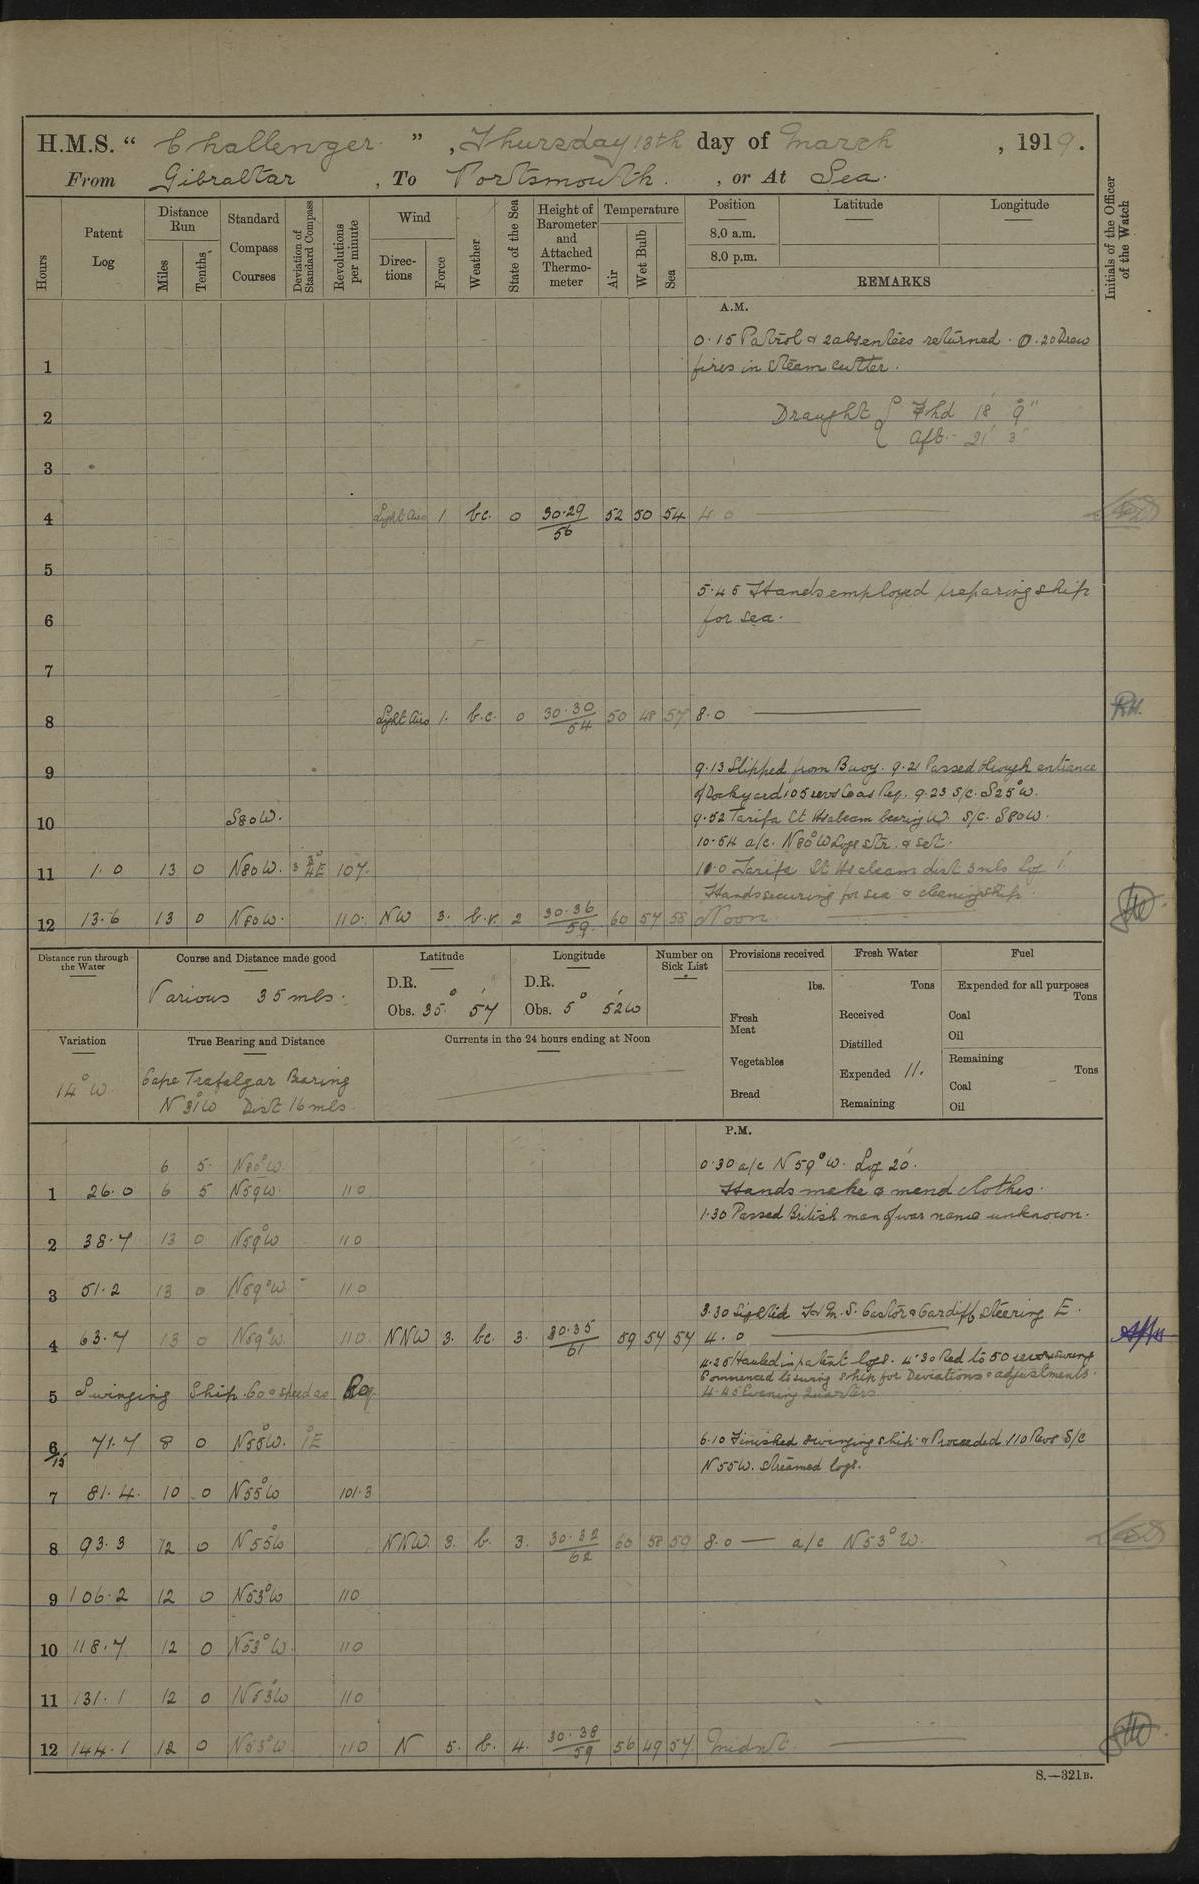 H.M.S. " Challenger " , Thursday 13th day of March , 1919.
From Gibraltar , To Portsmouth. , or At Sea.
Hours
Patent Log
Distance Run
Miles
Tenths
Standard Compass Courses
Deviation of Standard Compass
Revolutions per minute
Wind
Direc- tions
Force
Weather
State of the Sea
Height of Barometer and Attached Thermo- meter
Temperature
Air
Wet Bulb
Sea
Position
8.0 a.m.
8.0 p.m.
Latitude
Longitude
REMARKS
Initials of the Officer of the Watch
A.M.
0.15 Patrol & 2 absentees returned. 0.20 Drew
1 fires in steam cutter.
2 Draught { Fhd 18' 9"
Aft. 21' 3"
3
4 Light Airs 1 bc. 0 30.29/56 52 50 54 4 0
5
5.45 Hands employed preparing ship
6 for sea.
7
8 Light Airs 1. b.c. 0 30.30/54 50 48 57 8.0 RH.
9 9.13 Slipped from Buoy. 9.21 Passed through entrance
of Dockyard 105 revs Co as Req. 9.23 S/c. S25°W.
10 S80W. 9.52 Tarifa Lt Hs abeam bearing W. S/C. S80W.
10.54 a/c. N80°W Logs str. & set.
11 1.0 13 0 N80W. 107. 11.0 Tarifa Lt Hs abeam dist 3 mls Log 1'
Hands securing for sea & cleaning ship
12 13.6 13 0 N80W. 110. NW 3. b.v. 2 30.36/59. 60 57 55 Noon.
Distance run through the Water
Course and Distance made good
Various 35 mls.
Latitude
D.R.
Obs. 35° 57'
Longitude
D.R.
Obs. 5° 52'W
Number on Sick List
Provisions received
lbs.
Fresh Meat
Vegetables
Bread
Fresh Water
Tons
Received
Distilled
Expended 11.
Remaining
Fuel
Expended for all purposes
Tons
Coal
Oil
Remaining
Tons
Coal
Oil
Variation
14°W.
True Bearing and Distance
Cape Trafalgar Bearing
N31°W Dist 16 mls.
Currents in the 24 hours ending at Noon
P.M.
6 5. N80°W. 0.30 a/c N59°W. Log 20'.
1 26.0 6 5 N59W. 110 Hands make & mend clothes.
1.30 Passed British man of war name unknown.
2 38.7 13 0 N59°W 110
3 51.2 13 0 N59°W 110
3.30 Sighted H.M.S. Castor & Cardiff steering E.
4 63.7 13 0 N59°W. 110. NNW 3. bc. 3. 30.35/61 59 57 57 4.0
4.25 Hauled in patent logs. 4.30 Red to 50 revs
Commenced to swing ship for Deviations & adjustments.
5 Swinging Ship. Co & speed as Req. 4.45 Evening Quarters
6/15 71.7 8 0 N55°W. 1°E 6.10 Finished swinging ship. & Proceeded 110 Revs S/C
N55W. streamed logs.
7 81.4. 10 0 N55°W 101.3
8 93.3 12 0 N55°W NNW. 3. b. 3. 30.32/62 60 58 59 8.0 — a/c N53°W.
9 106.2 12 0 N53°W 110
10 118.7 12 0 N53°W. 110
11 131.1 12 0 N53°W 110
12 144.1 12 0 N53°W. 110 N 5. b. 4. 30.38/59 56 49 57. Midnt.
S.—321B.